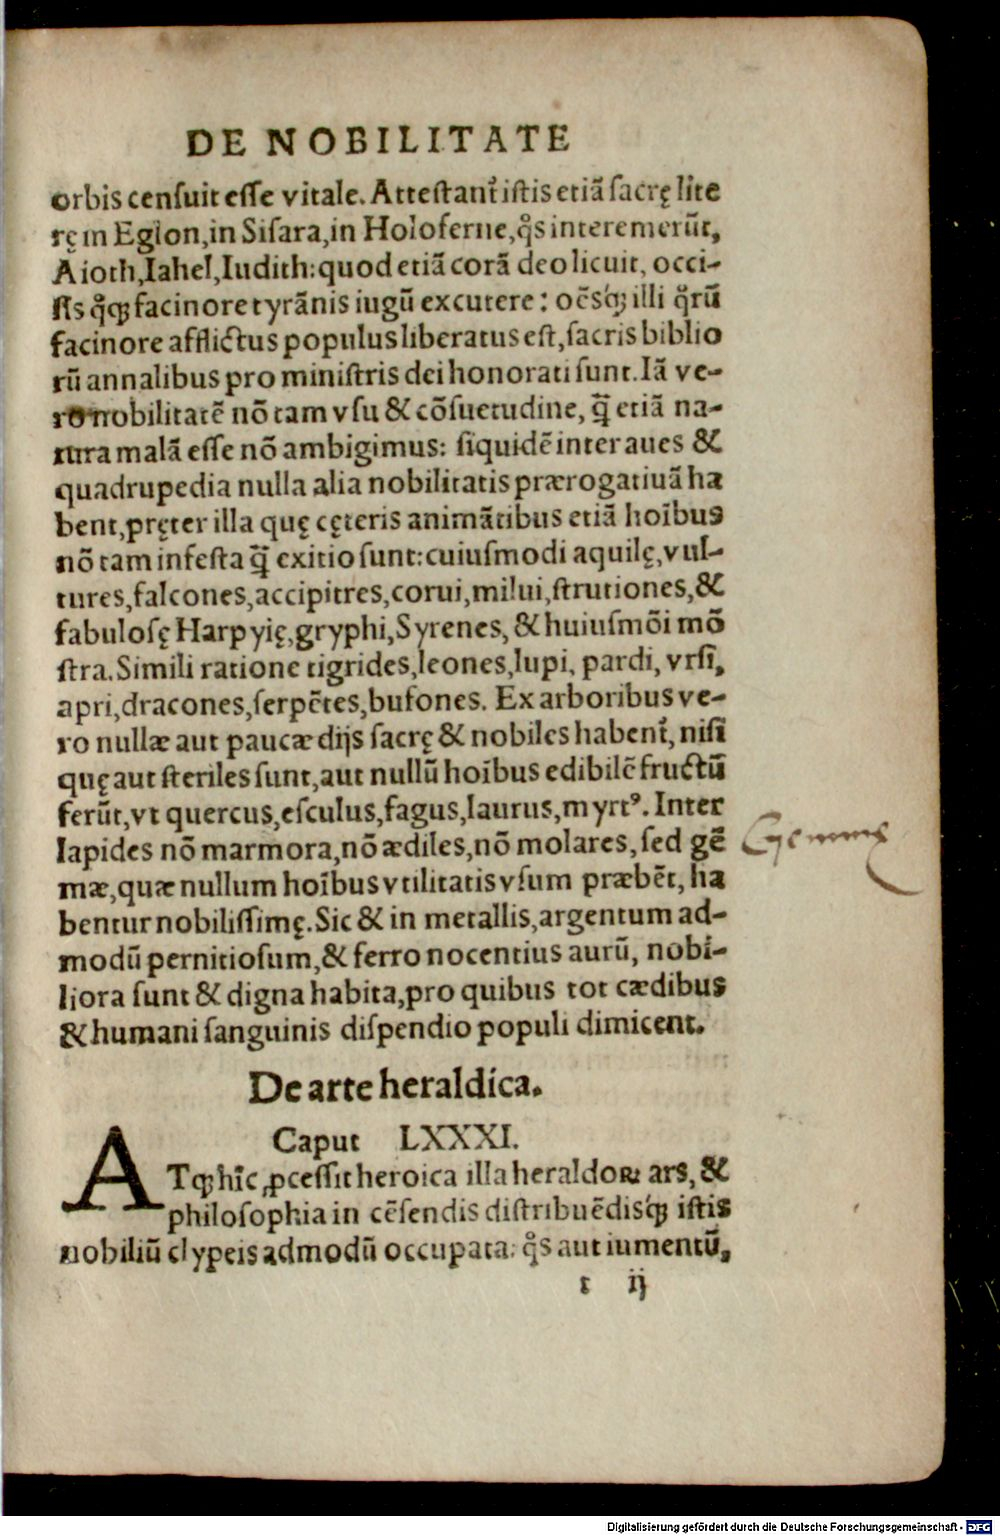 DE NOBILITATE
orbis censuit esse vitale. Attestant᷑ istis etiã sacrę lr̃e
rę in Egion, in Sisara, in Holoferne, q̊s interemerũt,
Aioth, Iahel, Iudith: quod etiã corã deo licuit, occi-
sis q̊cꝗ facinore tyrãnis iugũ excutere: oẽsq́ꝫ illi q̃rũ
facinore afflictus populus liberatus est, sacris biblio
rũ annalibus pro ministris dei honorati sunt. Iã ve-
ro nobilitatẽ nõ tam vsu & cõsuetudine, q̃̃ etiã na-
tura malã esse nõ ambigimus: siquidẽ inter aues &
quadrupedia nulla alia nobilitatis prærogatiuã ha
bent, pręter illa quę cęteris animãtibus etiã hoĩbus
nõ tam infesta q̃̃ exitio sunt: cuiusmodi aquilę, vul-
tures, falcones, accipitres, corui, milui, strutiones, &
fabulosę Harpyię, gryphi, Syrenes, & huiusmõi mõ
stra. Simili ratione tigrides, leones, lupi, pardi, vrsi,
apri, dracones, serpẽtes, bufones. Ex arboribus ve-
ro nullæ aut paucæ dijs sacrę & nobiles habent᷑, nisi
quę aut steriles sunt, aut nullũ hoĩbus edibilẽ fructũ
ferũt, vt quercus, esculus, fagus, laurus, myrtꝰ. Inter
lapides nõ marmora, nõ ædiles, nõ molares, sed gẽ
mæ, quæ nullum hoĩbus vtilitatis vsum præbẽt, ha
bentur nobilissimę. Sic & in metallis, argentum ad-
modũ pernitiosum, & ferro nocentius aurũ, nobi-
liora sunt & digna habita, pro quibus tot cædibus
& humani sanguinis dispendio populi dimicent.
Gemme
De arte heraldica.
Caput LXXXI.
ATqꝫ hĩc ꝓcessit heroica illa heraldoꝝ ars, &
philosophia in cẽsendis distribuẽdisq́ꝫ istis
nobiliũ clypeis admodũ occupata: q̊s aut iumentũ,
t ij
Digitalisierung gefördert durch die Deutsche Forschungsgemeinschaft - DFG